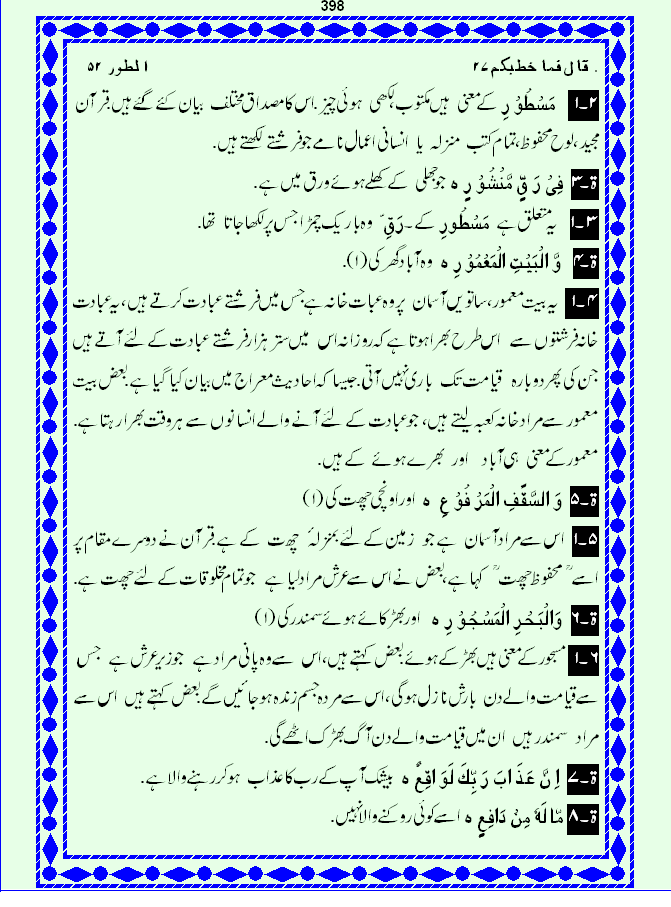 398
قال فما خطبکم ۲۷ الطور ۵۲
۲۔۱ مَسْطُوْرٍ کے معنی ہیں مکتوب لکھی ہوئی چیز۔ اس کا مصداق مختلف بیان کئے گئے ہیں قرآن
مجید، لوح محفوظ، تمام کتب منزلہ یا انسانی اعمال نامے جو فرشتے لکھتے ہیں۔
ۃ۔۳ فِیْ رَقٍّ مَّنْشُوْرٍ ہ جو جھلی کے کھلے ہوئے ورق میں ہے۔
۳۔۱ یہ متعلق ہے مَسْطُورٍ کے۔ رَقِّ َ وہ باریک چمڑا جس پر لکھا جاتا تھا۔
ۃ۔۴ وَّ الْبَیْتِ الْمَعْمُوْرِ ہ وہ آباد گھر کی (۱)۔
۴۔۱ یہ بیت معمور، ساتویں آسمان پر وہ عبات خانہ ہے جس میں فرشتے عبادت کرتے ہیں، یہ عبادت
خانہ فرشتوں سے اس طرح بھرا ہوتا ہے کہ روزانہ اس میں ستر ہزار فرشتے عبادت کے لئے آتے ہیں
جن کی پھر دوبارہ قیامت تک باری نہیں آتی۔ جیسا کہ احادیث معراج میں بیان کیا گیا ہے بعض بیت
معمور سے مراد خانہ کعبہ لیتے ہیں، جو عبادت کے لئے آنے والے انسانوں سے ہر وقت بھرا رہتا ہے۔
معمور کے معنی ہی آباد اور بھرے ہوئے کے ہیں۔
ۃ۔۵ وَ السَّقْفِ الْمَرْفُوْعِ ہ اور اونچی چھت کی (۱)
۵۔۱ اس سے مراد آسمان ہے جو زمین کے لئے بمنزلۂ چھت کے ہے قرآن نے دوسرے مقام پر
اسے " محفوظ چھت " کہا ہے، بعض نے اس سے عرش مراد لیا ہے جو تمام مخلوقات کے لئے چھت ہے۔
ۃ۔۶ وَالْبَحْرِ الْمَسْجُوْرِ ہ اور بھڑکائے ہوئے سمندر کی (۱)
۶۔۱ مسجور کے معنی ہیں بھڑکے ہوئے بعض کہتے ہیں، اس سے وہ پانی مراد ہے جو زیر عرش ہے جس
سے قیامت والے دن بارش نازل ہوگی، اس سے مردہ جسم زندہ ہو جائیں گے بعض کہتے ہیں اس سے
مراد سمندر ہیں ان میں قیامت والے دن آگ بھڑک اٹھے گی۔
ۃ۔۷ اِنَّ عَذَابَ رَبِّكَ لَوَاقِعٌ ہ بیشک آپ کے رب کا عذاب ہو کر رہنے والا ہے۔
ۃ۔۸ مَّا لَهٗ مِنْ دَافِعٍ ہ اسے کوئی روکنے والا نہیں۔